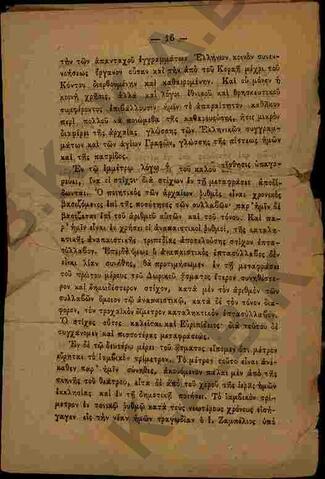 — 16 —
τὴν τῶν ἁπανταχοῦ ἐγγραμμάτων Ἑλλήνων κοινὸν συνεν-
νοήσεως ὄργανον οὖσαν καὶ τὴν ἀπὸ τοῦ Κοραῆ μέχρι τοῦ
Κόντου διερθουμένην καὶ καθαιρομένην. Καὶ οὐ μόνον ἡ
κοινὴ χρῆσις, ἀλλὰ καὶ λόγοι ἐθνικοῦ καὶ θρησκευτικοῦ
συμφέροντος ἐπιβάλλουσιν ἡμῖν τὸ ἀπαραίτητον καθῆκον
περὶ πολλοῦ νὰ ποιώμεθα τῆς καθαρευούσης, ἥτις μικρὸν
διαφέρει τῆς ἀρχαίας γλώσσης τῶν Ἑλληνικῶν συγγραμ-
μάτων καὶ τῶν ἁγίων Γραφῶν, γλώσσης τῆς πίστεως ἡμῶν
καὶ τῆς πατρίδος.
Ἐν τῷ ἐμμέτρῳ λόγῳ ἡ τοῦ καλοῦ αἴσθησις ὑπαγο-
ρεύει, ἵνα οἱ στίχοι διὰ στίχων ἐν τῇ μεταφράσει ἀποδί-
δωνται. Ὁ ποιητικὸς τῶν ἀρχαίων ῥυθμὸς εἶναι χρονικὸς
βασιζόμενος ἐπὶ τῆς ποσότητος τῶν συλλαβῶν· παρ' ἡμῖν δὲ
βασίζεται ἐπὶ τοῦ ἀριθμοῦ αὐτῶν καὶ τοῦ τόνου. Καὶ παρ'
ἡμῖν εἶναι ἐν χρήσει οἱ ἀναπαιστικοὶ ῥυθμοί, τῆς καταλη-
κτικῆς ἀναπαιστικῆς τριποδίας ἀποτελούσης στίχον ἑπτα-
σύλλαβον. Ἐπειδὴ ὅμως ὁ ἀναπαιστικὸς ἑπτασύλλαβος δὲν
εἶναι λίαν συνήθης, θὰ προτιμήσωμεν ἐν τῇ μεταφράσει
τοῦ πρώτου μέρους τοῦ Δωρικοῦ ᾄσματος ἕτερον συνηθέστε-
ρον καὶ δημωδέστερον στίχον, κατὰ μὲν τὸν ἀριθμὸν τῶν
συλλαβῶν ὅμοιον τῷ ἀναπαιστικῷ, κατὰ δὲ τὸν τόνον διά-
φορον, τὸν τροχαϊκὸν δίμετρον καταληκτικὸν ἑπτασύλλαβον.
Ὁ στίχος οὗτος καλεῖται καὶ Εὐριπίδειος· διὰ τούτου δὲ
τυγχάνομεν καὶ πιστοτέρας μεταφράσεως.
Ἐν δὲ τῷ δευτέρῳ μέρει τοῦ ᾄσματος εἴπομεν ὅτι μέτρον
εὕρηται τὸ ἰαμβικὸν τρίμετρον. Τὸ μέτρον τοῦτο εἶναι ἀνέ-
καθεν παρ' ἡμῖν σύνηθες, ἀκουόμενον πάλαι μὲν ἀπὸ τῆς
σκηνῆς τοῦ θεάτρου, εἶτα δὲ ἀπὸ τοῦ χοροῦ τῆς ἱερᾶς ἡμῶν
ἐκκλησίας καὶ ἐν τῇ δημοτικῇ ποιήσει. Τὸ ἰαμβικὸν τρί-
μετρον ἐν ποικίλῳ ῥυθμῷ κατὰ τοὺς νεωτέρους χρόνους εἰσή-
γαγεν εἰς τὴν νέαν ἡμῶν τραγῳδίαν ὁ Ι. Ζαμπέλιος ὑπὸ